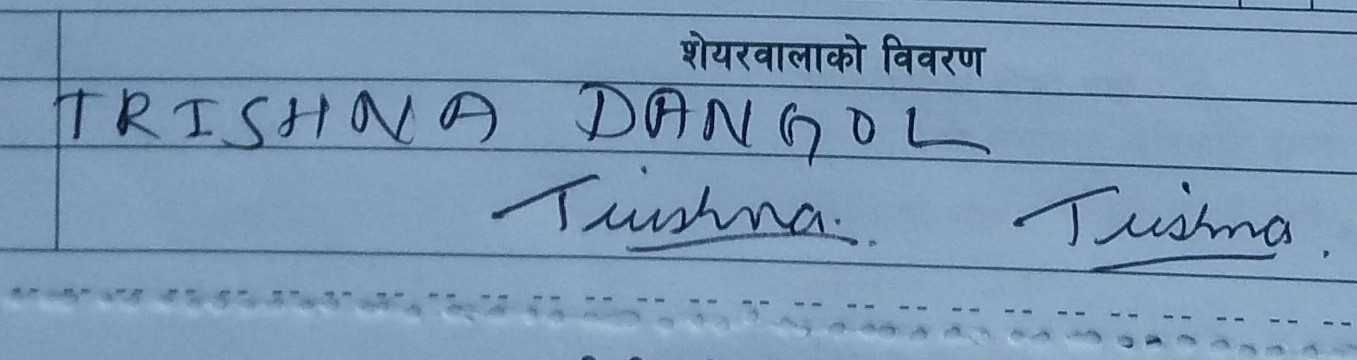 शेयरवालाको विवरण
TRISHNA DANGOL
Trishna. Trishna.